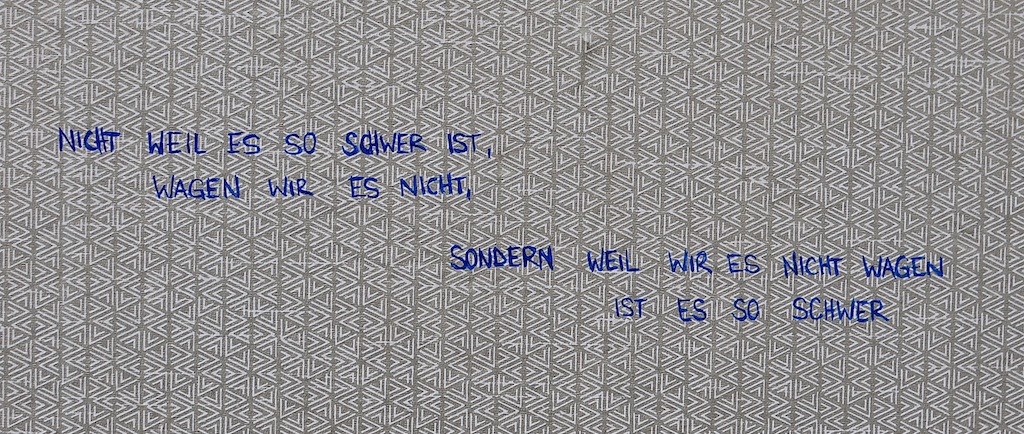 NICHT WEIL ES SO SCHWER IST,
WAGEN WIR ES NICHT,
SONDERN WEIL WIR ES NICHT WAGEN
IST ES SO SCHWER